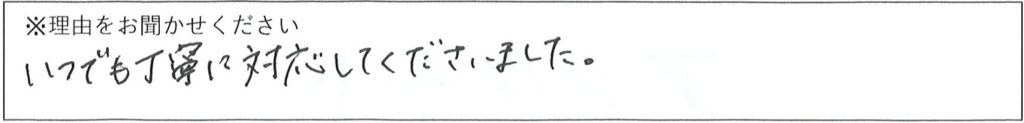 ※理由をお聞かせください
いつでも丁寧に対応してくださいました。